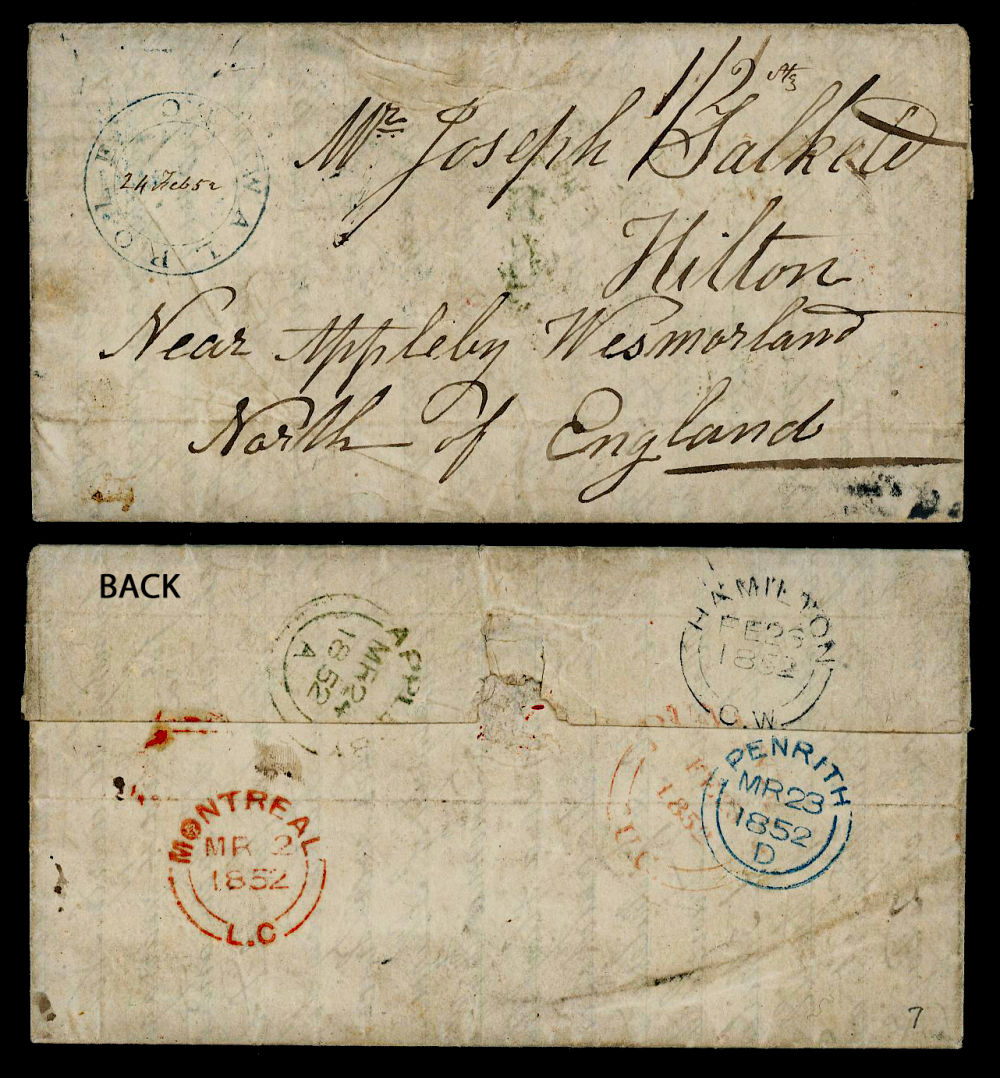 1/2 Stg
Mr. Joseph Salkeld
Hilton
Near Appleby Wesmorland
North of England
24 Feb 52
BACK
MR 24
1852
A
HAMILTON
FE 26
1852
C.W.
PENRITH
MR 23
1852
D
1852
MONTREAL
MR 2
1852
L.C
7